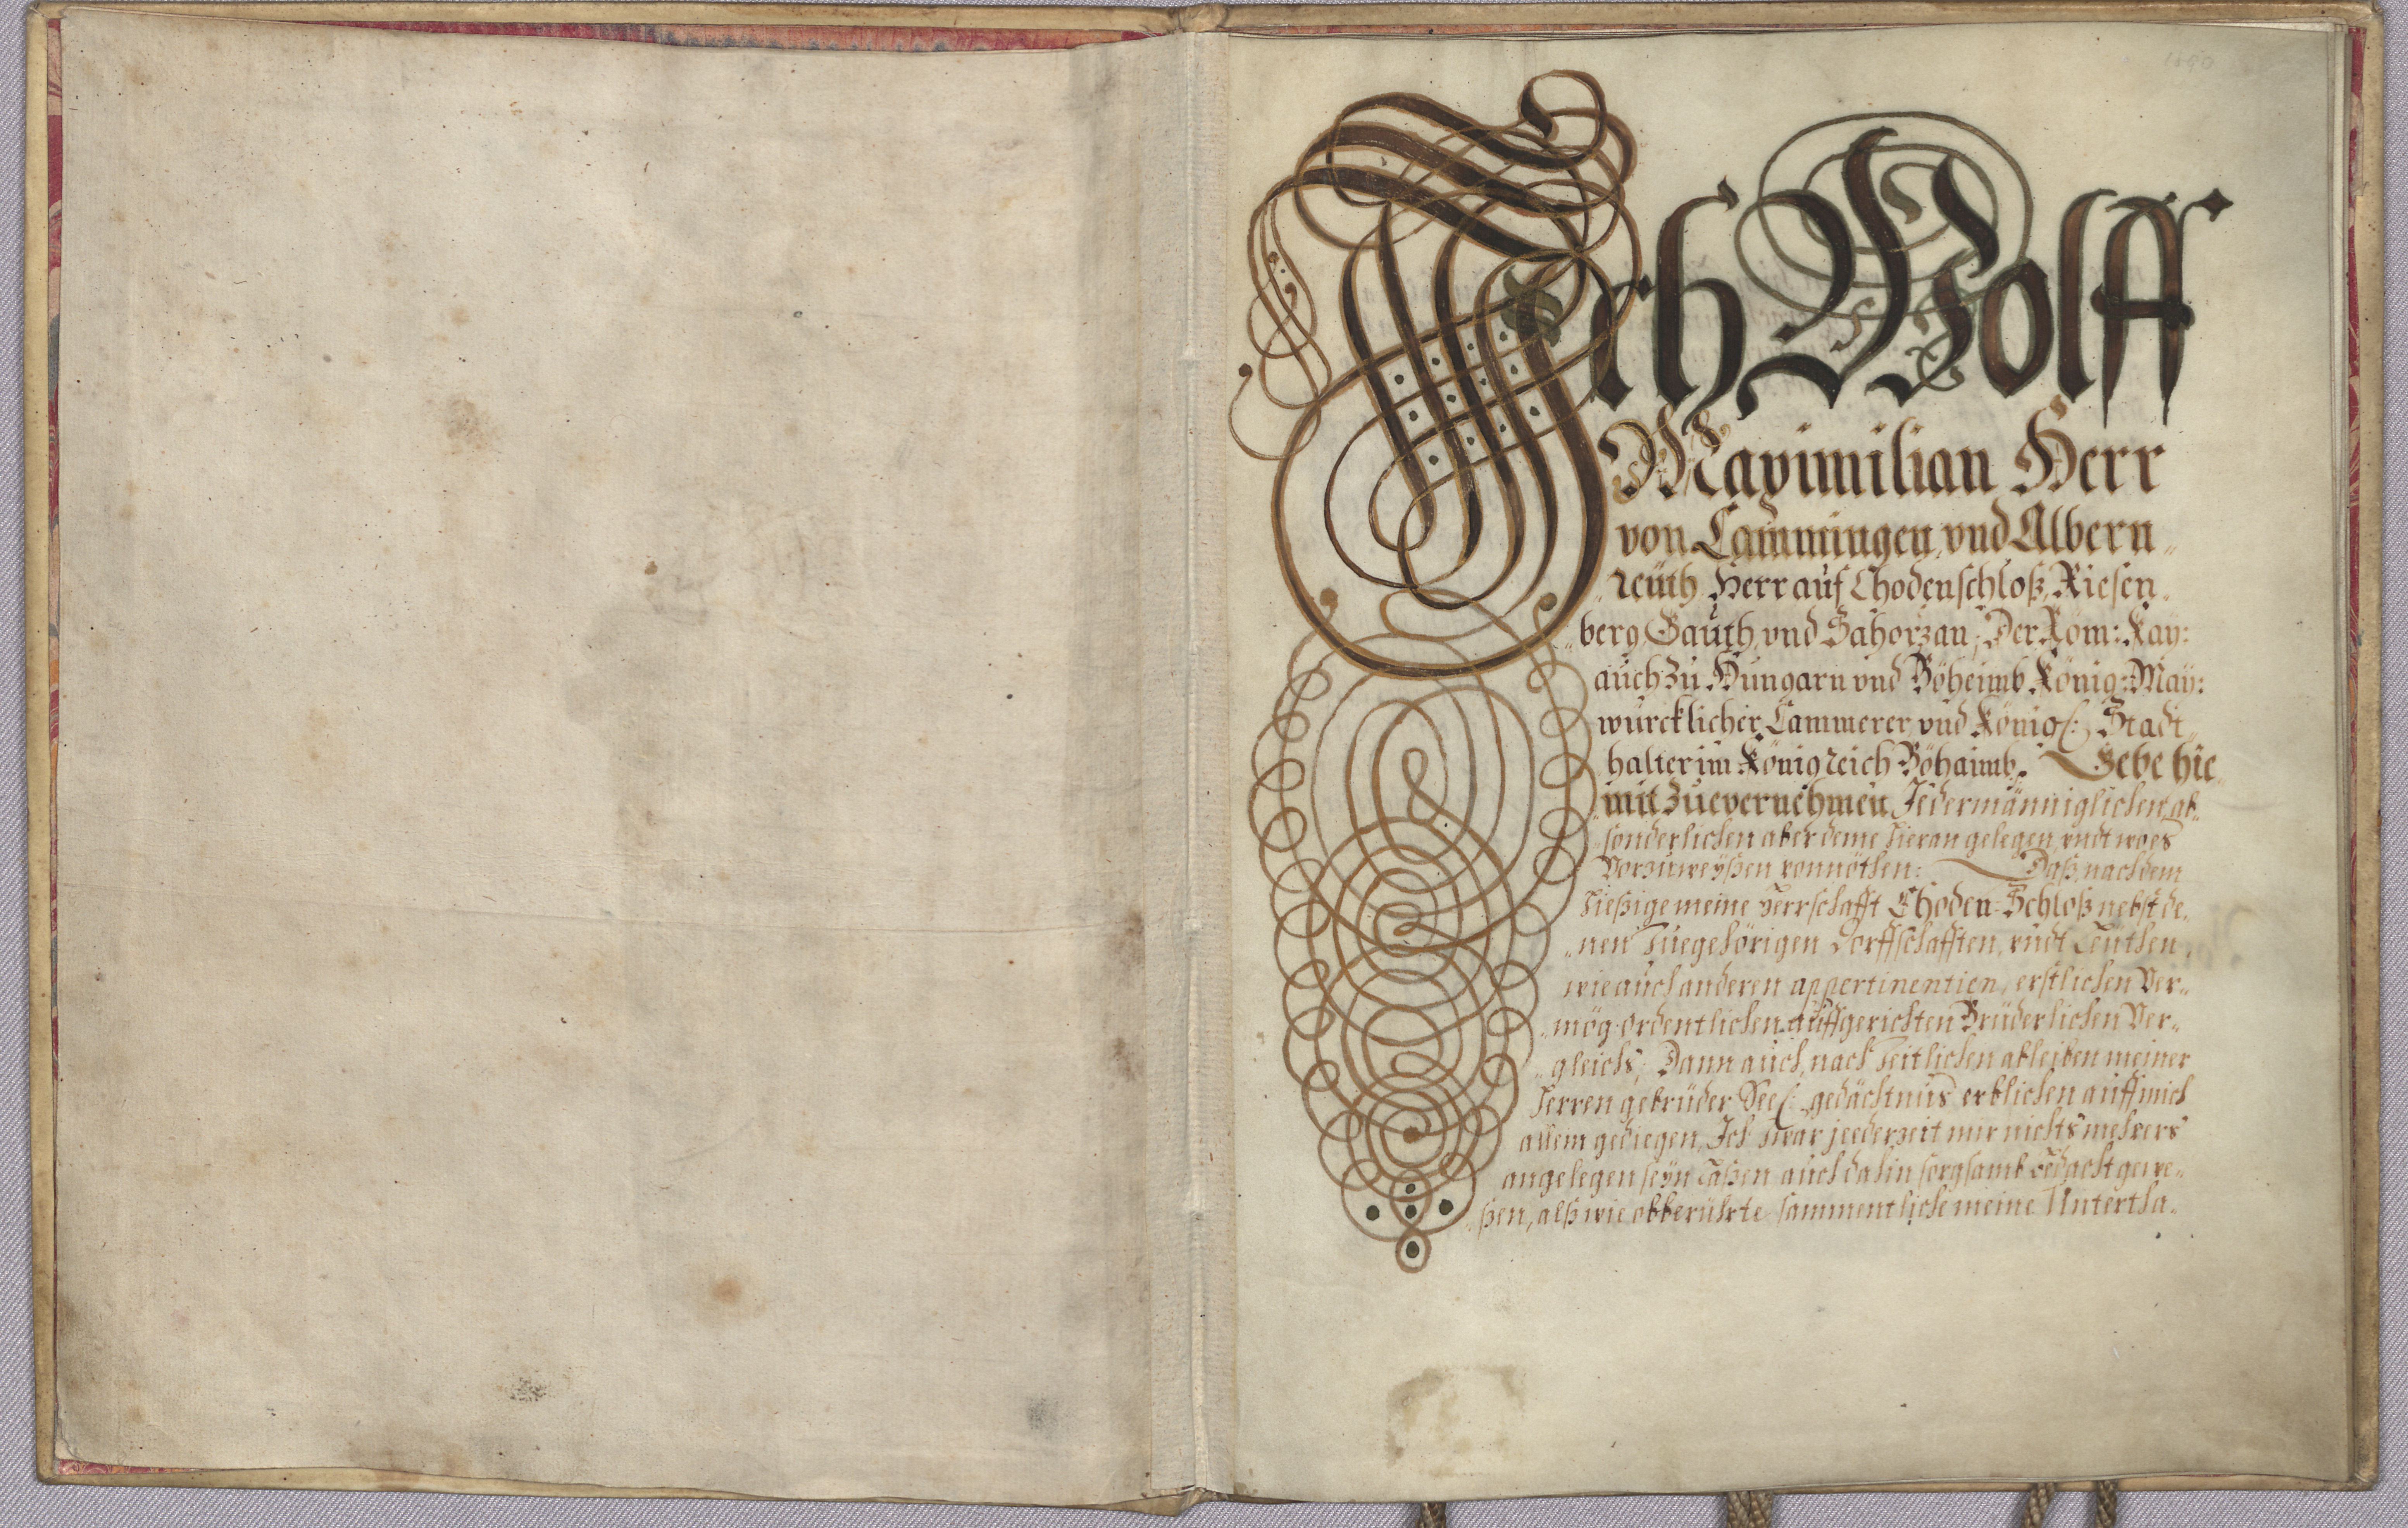 1690
Ich Wolff
Maximilian Herr
von Lammingen, vnd Albern„
„reüth, Herr auf Chodenschloß, Riesen„
„berg, Gaüth, vnd Sahorzan, Der Röm: Kaÿ:
aüch zu Hungarn vnd Böheimb König: Maÿ:
würcklicher Cammerer, vnd Königl: Stadt„
halter im Königreich Böhaimb. Gebe hie„
„mit zuevernehmen Jedermänniglichen, ab„
„sonderlichen aber deme hieran gelegen, vndt wo es
Vorzuweÿßen vonnöthen: Daß, nachdem
hießige meine Herrschafft Choden-Schloß nebst de„
„nen zuegehörigen Dorffschafften, vndt Leüthen,
wie aüch anderen appertinentien, erstlichen Ver„
„mög ordentlichen aüffgerichten Brüderlichen Ver„
„gleichs; Dann aüch, nach zeitlichen ableiben meiner
Herren gebrüder Seel: gedächtnüs erblichen aüff mich
allein gediegen, Ich zwar jeederzeit mir nichts mehrers
angelegen seÿn laßen aüch dahin sorgsamb bedacht gewe„
„ßen, alß wie obberührte sammentliche meine Untertha„